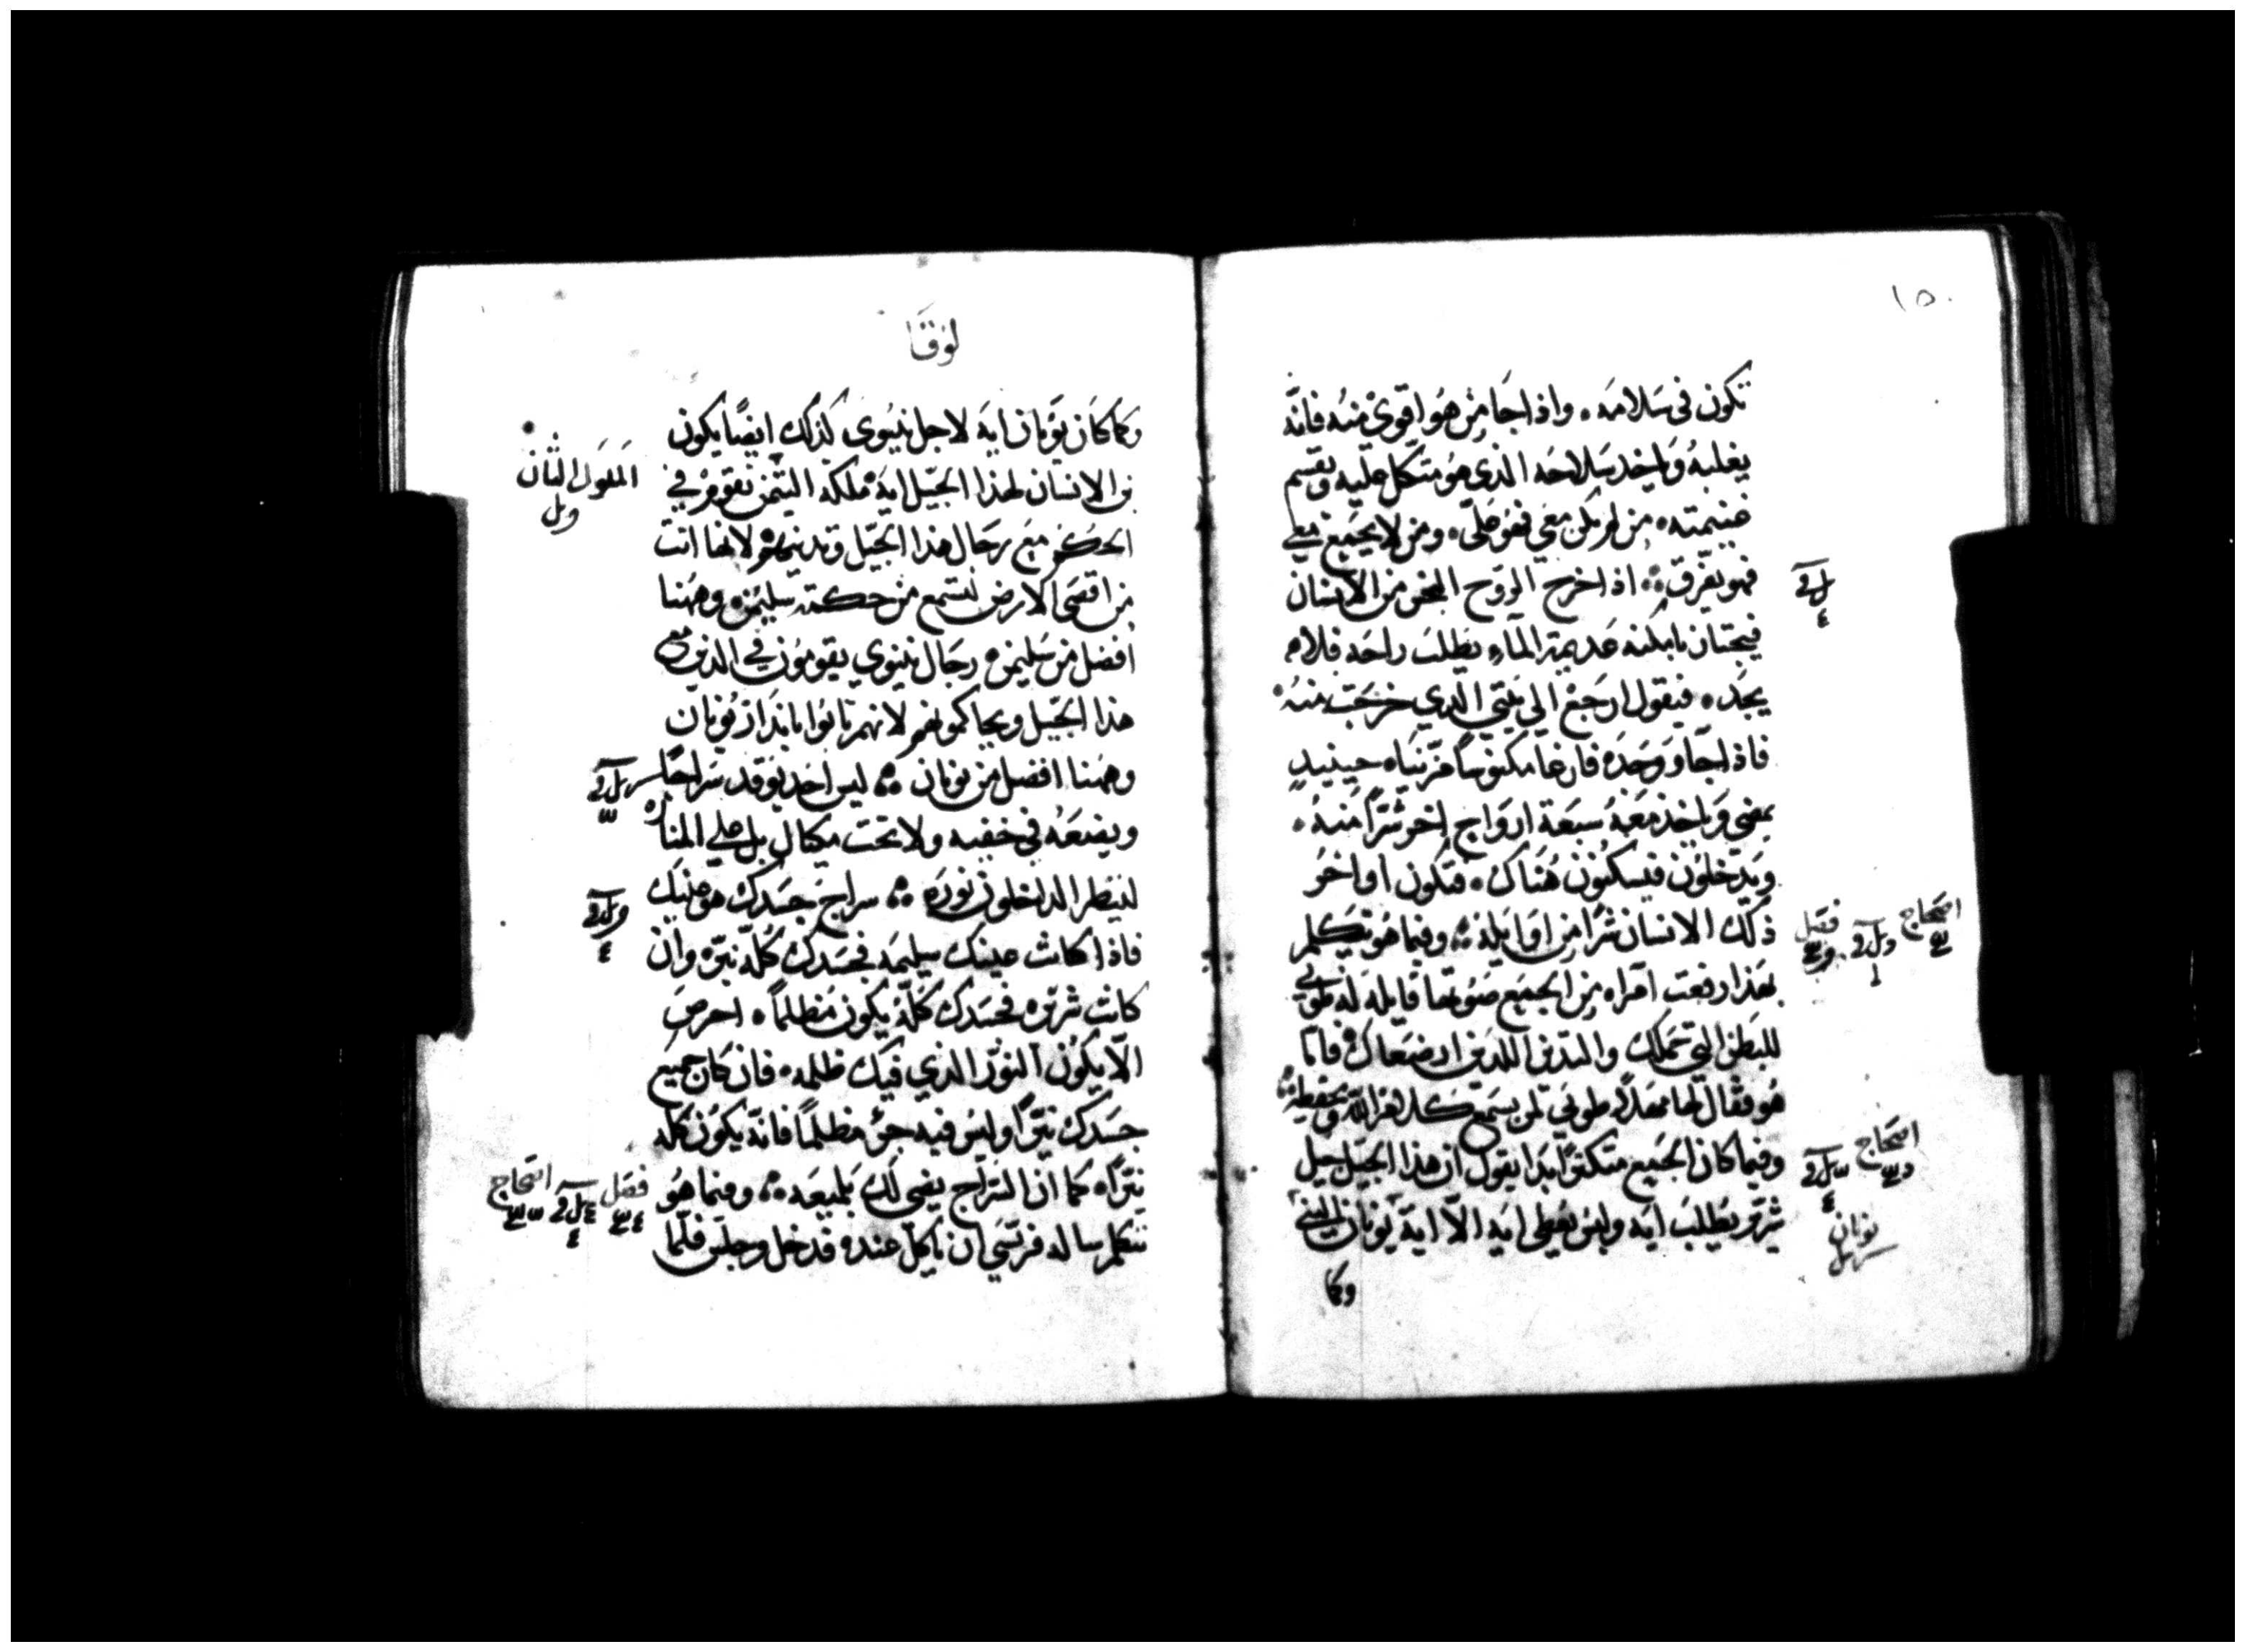 ١٥٠
تكون في سلامه واذا جا من هو اقوي منه فانه
يغلبه وياخد سلاحه الذي هو متكل عليه ويقسم
غنيمته من لم يكن معي فهو علي ومن لا يجمع معي
فهو يفرق اذا خرج الروح النجس من الانسان
فيجتاز بامكنه عديمة الماء يطلب راحه فلا
يجد فيقول ارجع الي بيتي الذي خرجت منه
فاذا جا ووجده فارغا مكنوسا مزينا حينيد
يمضي وياخذ معه سبعة ارواح اخر شرا منه
ويدخلون فيسكنون هناك فتكون اواخر
ذلك الانسان شرا من اوايله وفيما هو يتكلم
بهذا رفعت امراه من الجمع صوتها قايله له طوبي
للبطن التي حملك والثديين اللذين ارضعاك فاما
هو فقال لها مهلا طوبي لمن يسمع كلام الله ويحفظه
وفيما كان الجميع متكثر ابدا يقول ان هذا الجيل جيل
شرير يطلب ايه وليس يعطي ايه الا اية يونان النبي
وكما
فصل
اصحاح
اصحاح
يونان
لوقا
وكما كان يونان ايه لاجل نينوي كذلك ايضا يكون
بن الانسان لهذا الجيل ايه ملكة التيمن تقوم في
الحكم مع رجال هذا الجيل وتدينهم لانها اتت
من اقصي الارض لتسمع من حكمة سليمن وههنا
افضل من سليمن رجال نينوي يقومون في الدين مع
هذا الجيل ويحاكمونهم لانهم تابوا بانذار يونان
وههنا افضل من يونان ليس احد يوقد سراجا
ويضعه في خفيه ولا تحت مكيال بل علي المناره
لينظر الداخلون نوره سراج جسدك هو عينك
فاذا كانت عينك سليمه فجسدك كله نير وان
كانت شريره فجسدك كله يكون مظلما احرص
الا يكون النور الذي فيك ظلمه فان كان جميع
جسدك نيرا وليس فيه جزء مظلما فانه يكون كله
نيرا كما ان السراج يضي لك بلميعه وفيما هو
يتكلم ساله فريسي ان ياكل عنده فدخل وجلس فلما
الملوك الثان
فصل
اصحاح